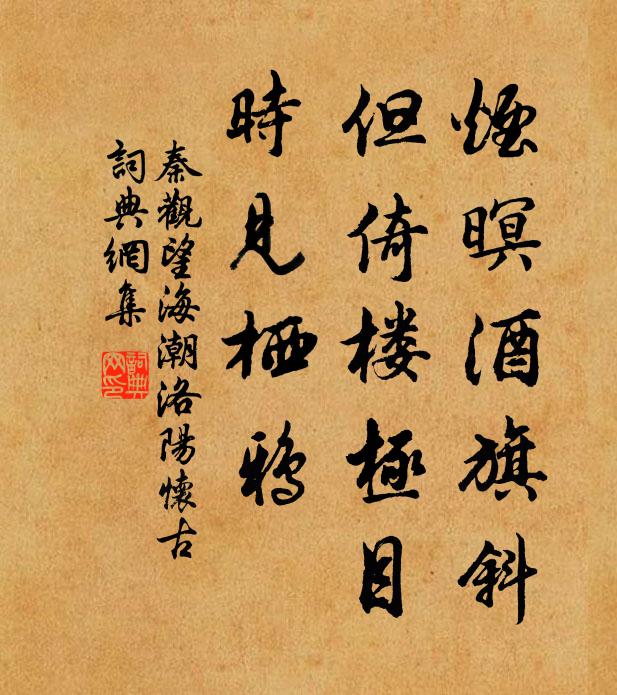 煙暝酒旗斜
但倚楼極目
時見栖鴉
秦觀望海潮洛陽懷古
詞典網集
詞典网印